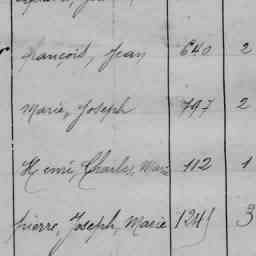 françois, Jean 640 2
Marie, Joseph 797 2
Henri, Charles, Marie 112 1
pierre, Joseph, Marie 1245 3